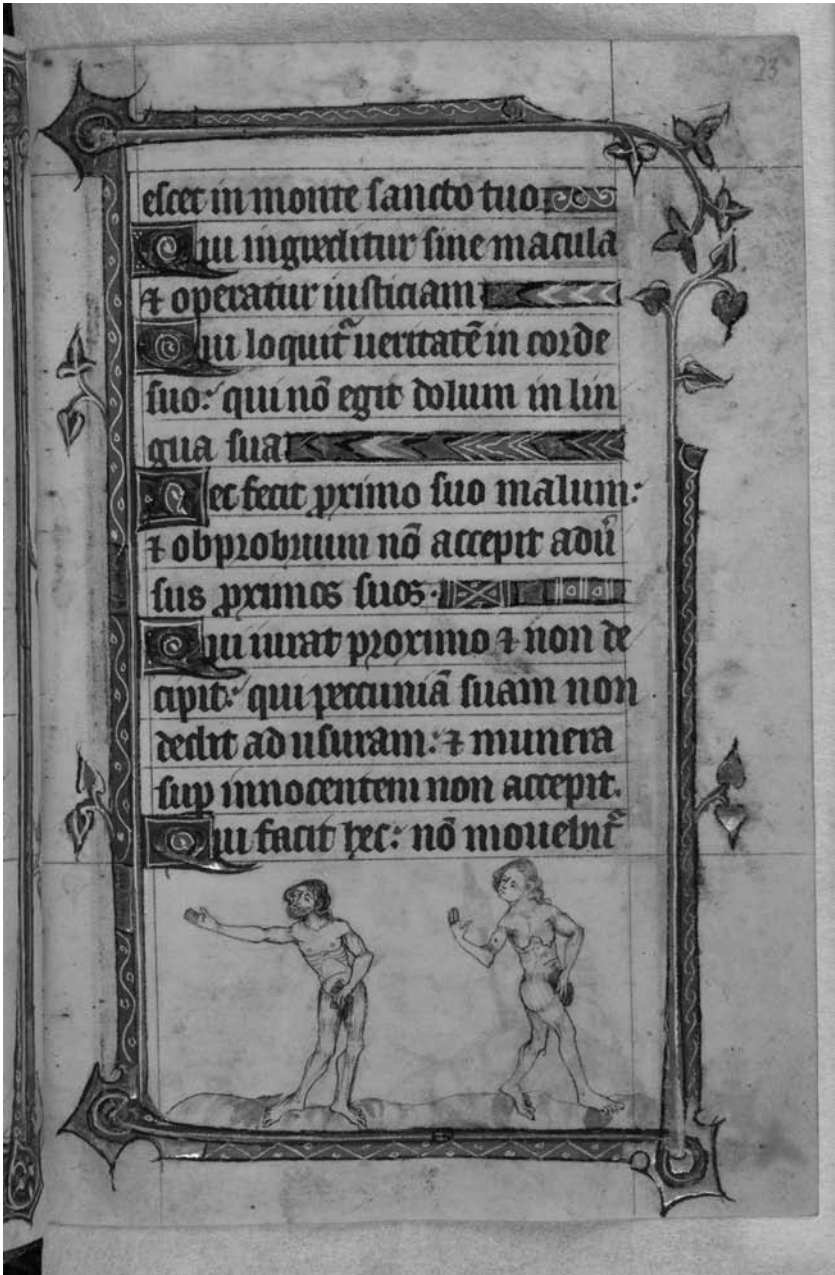 23
escet in monte sancto tuo
Qui ingreditur sine macula
⁊ operatur iusticiam
Qui loquit᷑ ueritatē in corde
suo: qui nō egit dolum in lin
gua sua
Nec fecit ꝓximo suo malum:
⁊ obprobrium nō accepit adũ
sus ꝓximos suos.
Qui iurat proximo ⁊ non de
cipit: qui peccuniā suam non
dedit ad usuram: ⁊ munera
suꝑ innocentem non accepit.
Qui facit hec: nō mouebit᷑